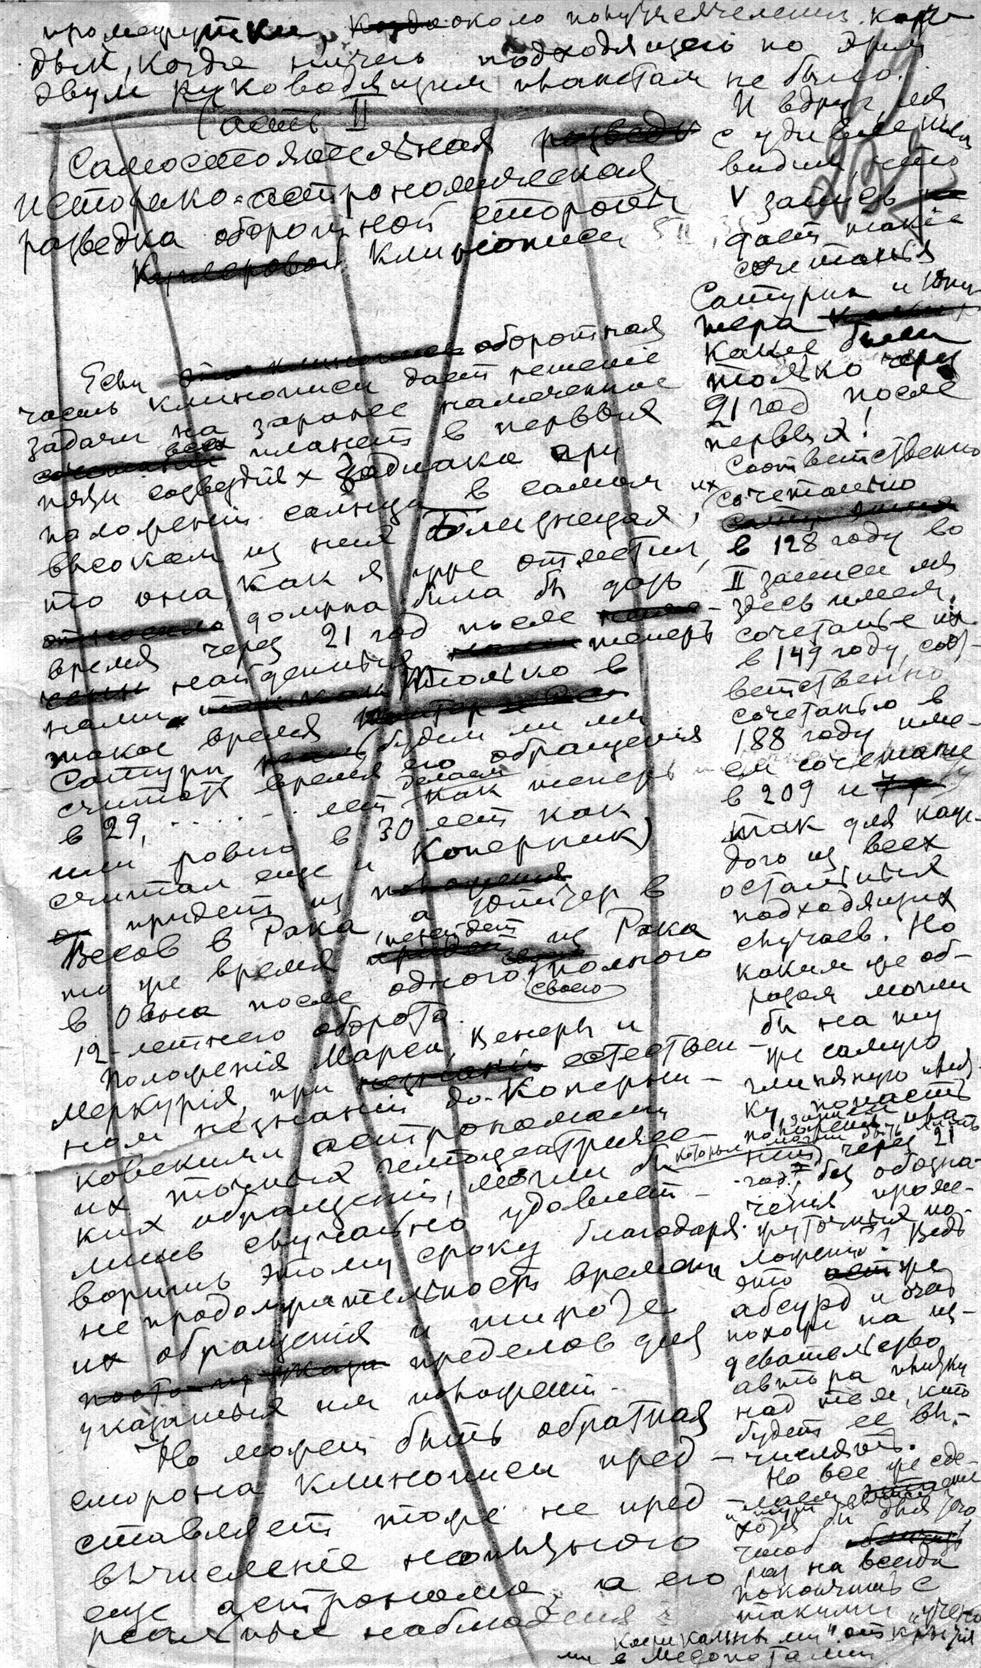 промежутки, около полутысячелетия каж-
дый, когда ничего подходящего по этим
двум руководящим планетам не было.
Часть II
Самостоятельная
историко-астрономическая
разведка оборотной стороны
клинописи
Если оборотная
часть клинописи дает решение
задачи на заранее намеченное
всех планет в первых
пяти созвездиях Зодиака при
положении солнца в самом
высоком из них Близнецах,
то она, как я уже отметил,
должна была бы дать
время через 21 год после
найденных теперь
нами. Только в
такое время
Сатурн (будем ли мы
считать время его обращения
в 29, ....... лет как делаем теперь
или ровно в 30 лет как
считал еще и Коперник)
придет из
Весов в Рака, а Юпитер в
то же время перейдет из Рака
в Овна после одного своего полного
12-летнего оборота.
Положения Марса, Венеры и
Меркурия, при естествен-
ном незнании до-Коперни-
ковскими астрономами
их точных гелиоцентричес-
ких обращений, могли бы
лишь случайно удовлет-
ворить этому сроку благодаря
непродолжительности времени
их обращения и широте
пределов для
указанных им положений.
Но может быть обратная
сторона клинописи пред-
ставляет тоже не пред
вычисление неопытного
еще астронома, а его
реальные наблюдения?
И вдруг мы
с удивлением
видим, что
V запись
дает такие
сочетания
Сатурна и Юпи-
тера
какие были
только через
21 год после
первых!
Соответственно
их сочетанию
в 128 году во
II записи мы
здесь имеем
сочетание их
в 149 году, соот-
ветственно
сочетанью в
188 году име-
ем сочетание
в 209 и
так для каж-
дого из всех
остальных
подходящих
случаев. Но
каким же об-
разом могли
бы на ту
же самую
глиняную плит-
ку попасть
записи
положения пла-
нет, которые могли быть лишь через 21
год, без обозна-
чения проме-
жуточных по-
ложений? Ведь
это же
абсурд и
похоже на из-
девательство
автора плитки
над тем, кто
будет ее вы-
числять.
Но все же сде-
лаем
хотя бы для того
чтоб
раз на всегда
покончить с
такими „учено
клерикальными“ открытия
ми в Месопотамии.